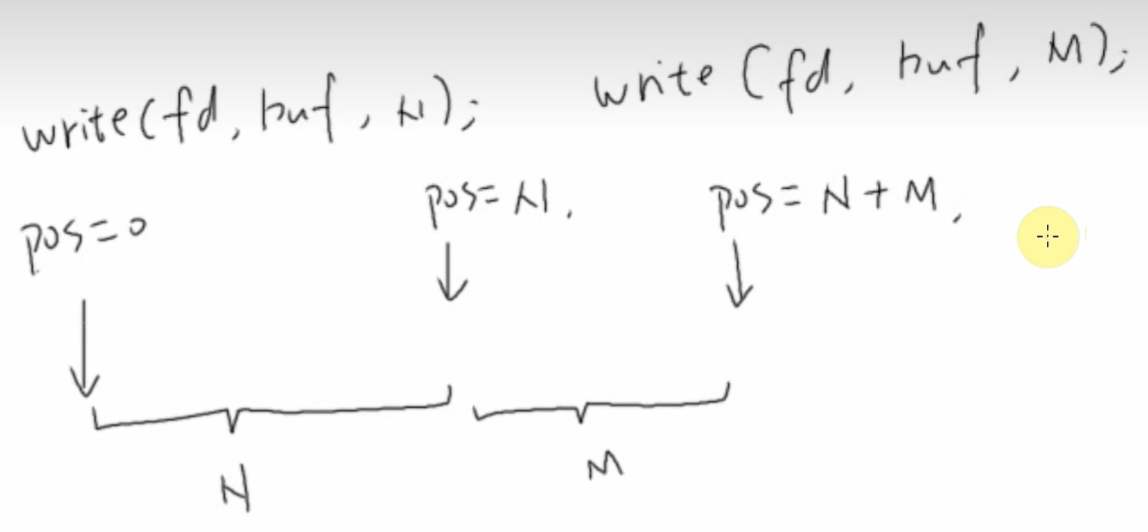 write(fd, buf, N); write(fd, buf, M);
pos=0 pos=N, pos=N+M,
N M